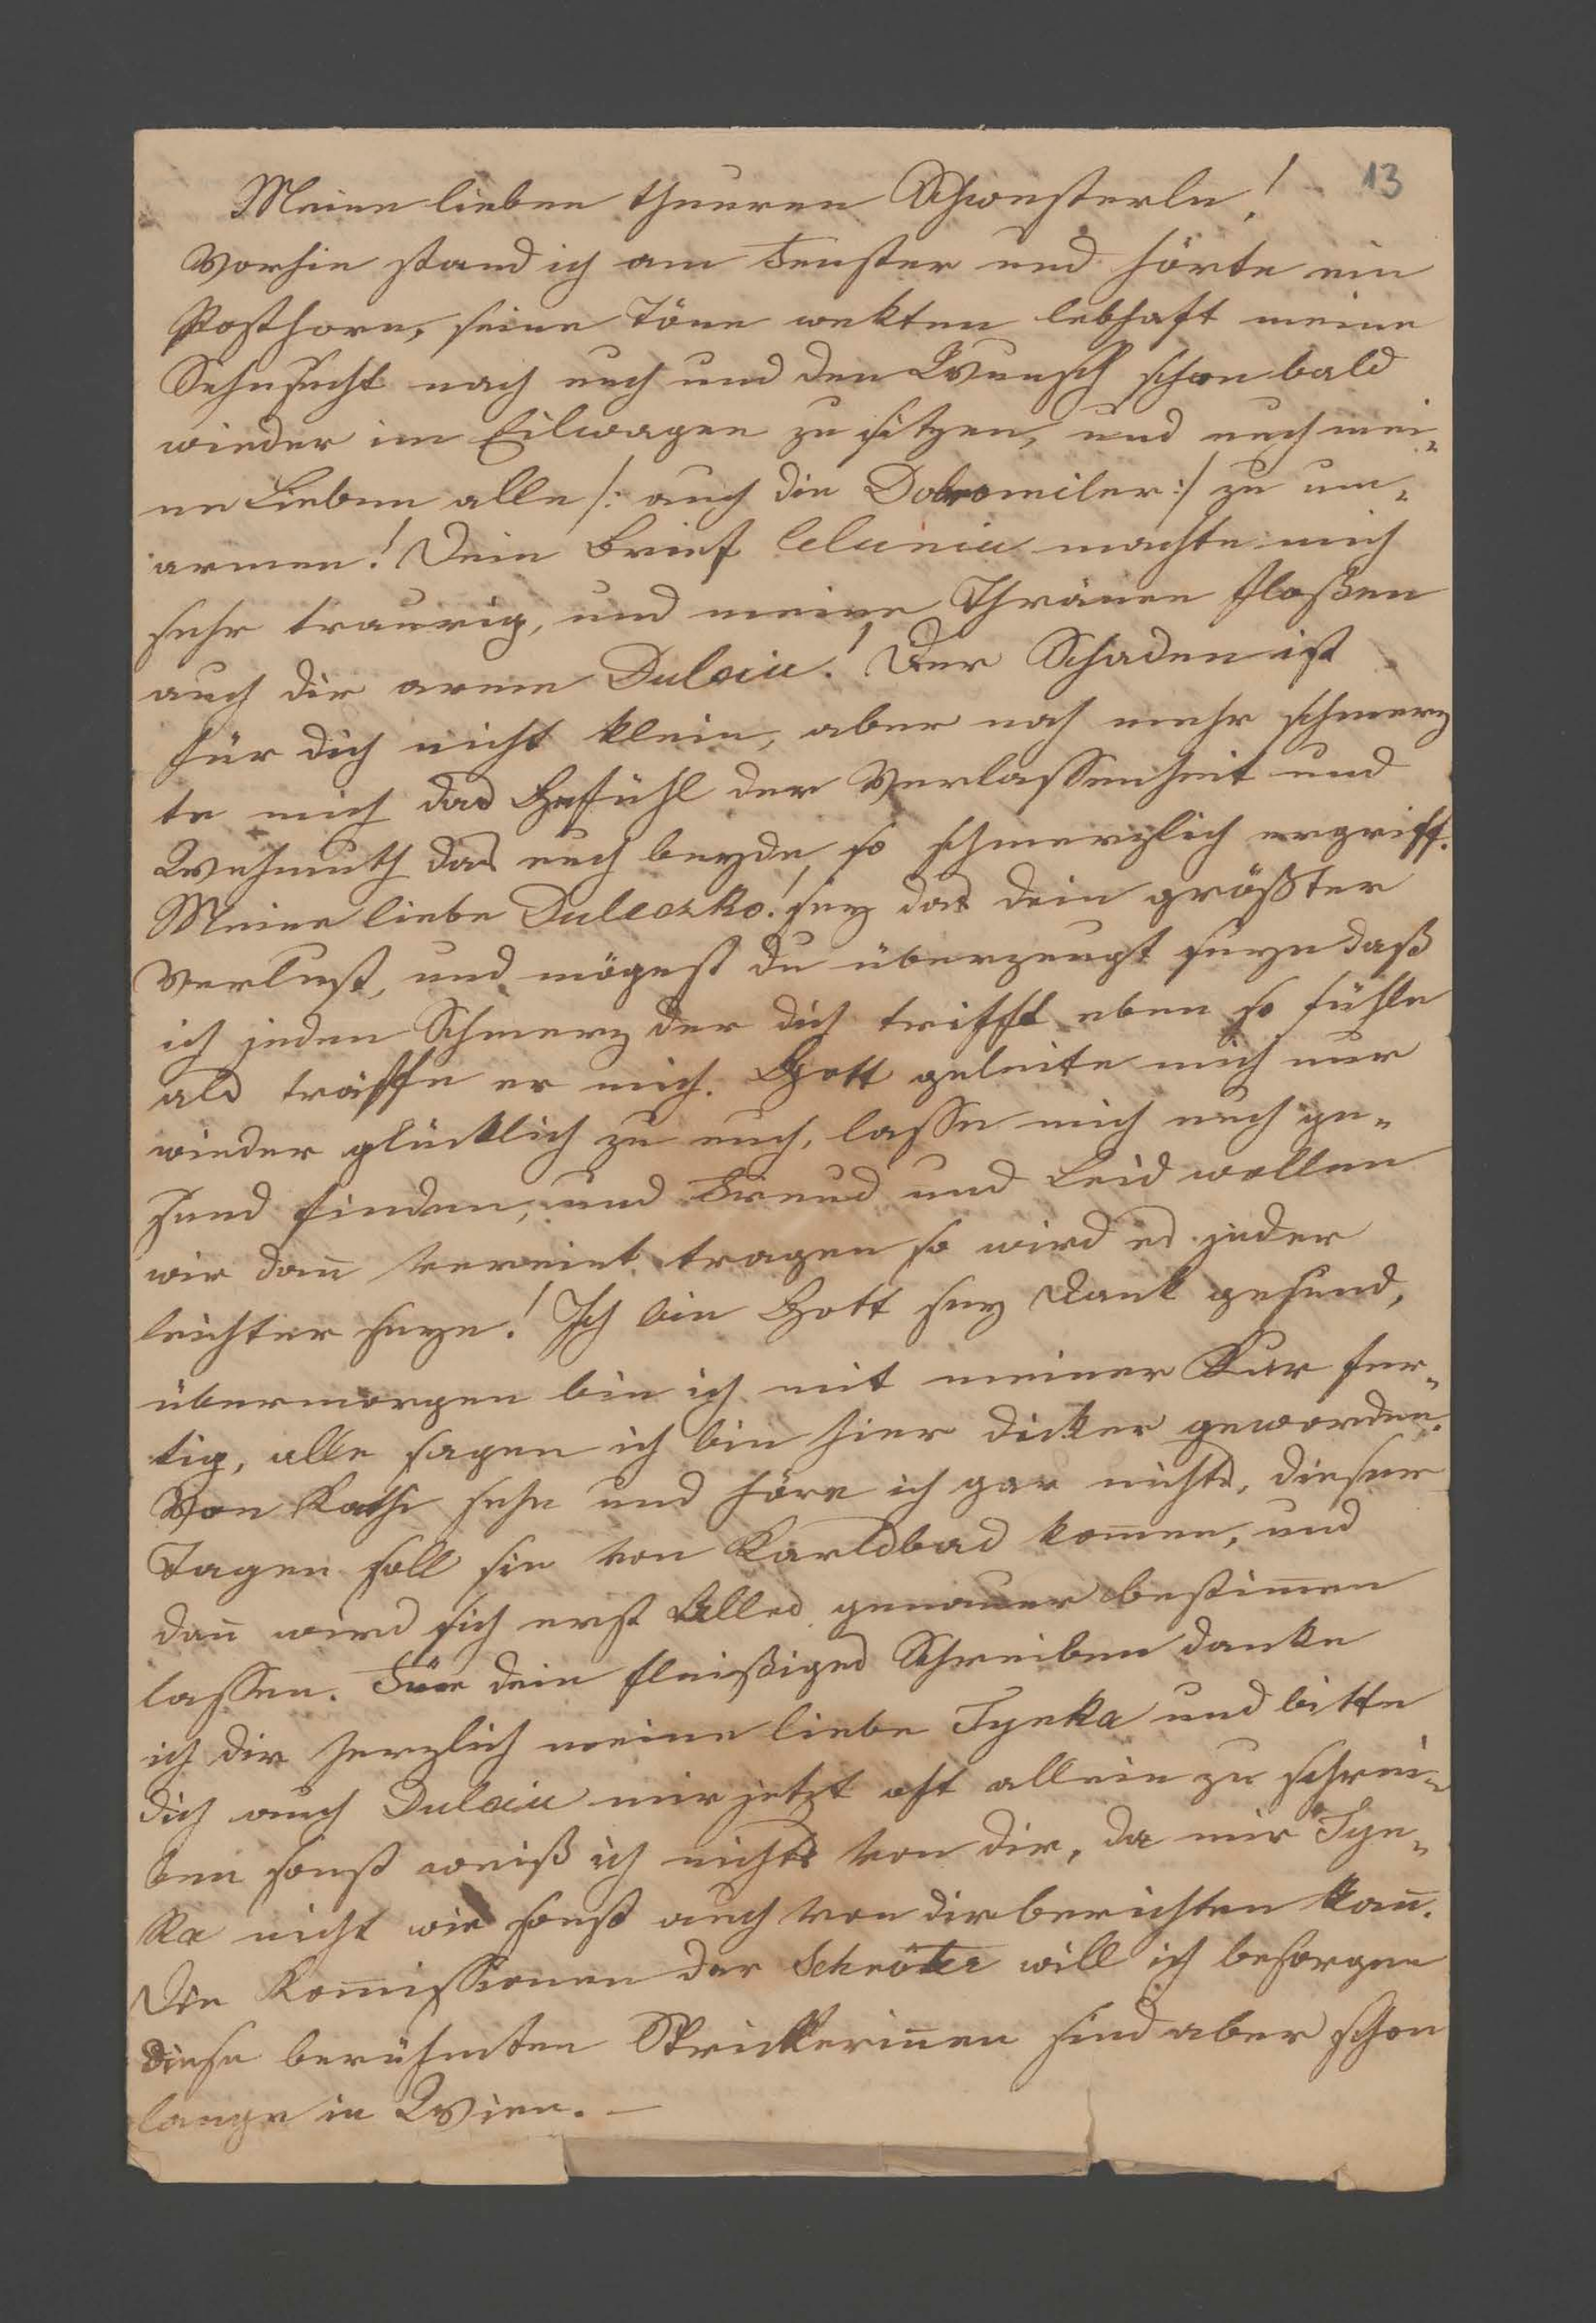 13
Meine lieben theuren Schwesterln!
Vorhin stand ich am Fenster und hörte ein
Posthorn, seine Töne wekten lebhaft meine
Sehnsucht nach euch und den Wunsch schon bald
wieder im Eilwagen zu sitzen, und euch mei-
ne Lieben alle /: auch die Dobromiler :/ zu um-
armen! Dein Brief Celunia machte mich
sehr traurig, und meine Thränen floßen
auch dir arme Dulciu! Der Schaden ist
für dich nicht klein, aber noch mehr schmerz
te mich das Gefühl der Verlassenheit und
Wehmuth das euch beyde so schmerzlich ergriff.
Meine liebe Duleczko! sey das dein größter
Verlust, und mögest du überzeugt seyn daß
ich jeden Schmerz der dich trifft eben so fühle
als träffe er mich. Gott geleite mich nur
wieder glücklich zu euch, lasse mich euch ge-
sund finden, und Freud und Leid wollen
wir dañ vereint tragen so wird es jeder
leichter seyn! Ich bin Gott sey Dank gesund,
übermorgen bin ich mit meiner Kur fer-
tig, alle sagen ich bin hier dicker geworden.
Von Kathi sehe und höre ich gar nichts, dieser
Tagen soll sie von Karlsbad kom̃en, und
dañ wird sich erst Alles genauer bestim̃en
lassen. Für dein fleißiges Schreiben danke
ich dir herzlich meine liebe Tynka und bitte
dich auch Dulciu mir jetzt oft allein zu schrei-
ben sonst weiß ich nichts von dir, da mir Tyn-
ka nicht wie sonst auch von dir berichten kañ.
Die Kom̃issionen der Schröter will ich besorgen
diese berühmten Strickeriñen sind aber schon
lange in Wien. —